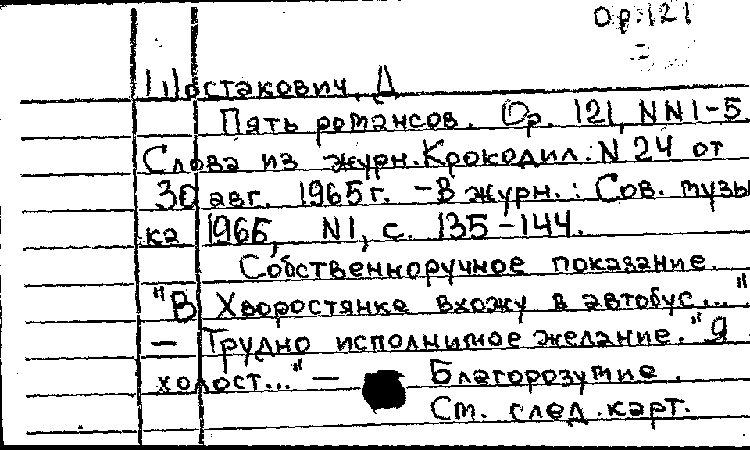 Op. 121
Шостакович, Д.
Пять романсов. Op. 121, NN1-5
Слова из журн. Крокодил. N 24 от
30 авг. 1965г. - В журн.: Сов. музы
ка 1966, N1, с. 135-144.
Собственноручное показание.
"В Хворостянке вхожу в автобус..."
- Трудно исполнимое желание. "Я
холост..." - Благоразумие.
См. след. карт.